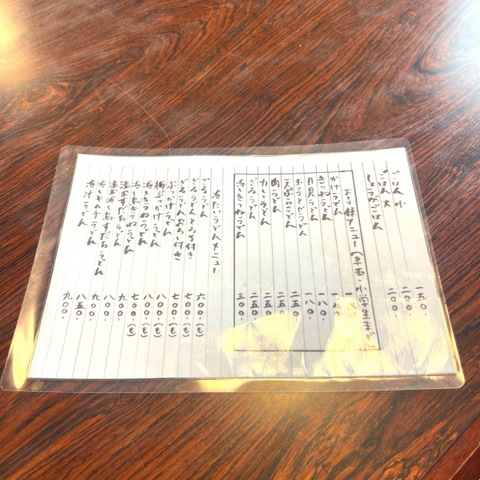 ごはん 小 一五〇.
ごはん 大 二〇〇.
しょうがごはん 二〇〇.
お子様メニュー(平日・小学生まで)
かけうどん
きつねうどん 一八〇.
月見うどん 一八〇.
玉子とじうどん 二五〇.
天ぷらうどん 二五〇.
肉うどん 二五〇.
カレーうどん 二五〇.
ころうどん 二五〇.
冷きつねうどん 三〇〇.
冷たいうどんメニュー
ころうどん 六〇〇.(も)
ころうどんとろろ付き 七〇〇.(も)
ころうどん 付き 七〇〇.(も)
ぶっかけうどん 七〇〇.(も)
梅ぶっかけうどん 八〇〇.(も)
冷きつねうどん 八〇〇.(も)
冷しきざうどん 七〇〇.(も)
温玉すだちうどん 九〇〇.
温玉冷しすだちうどん 九〇〇.
冷キムチうどん 八五〇.
冷汁うどん 九〇〇.